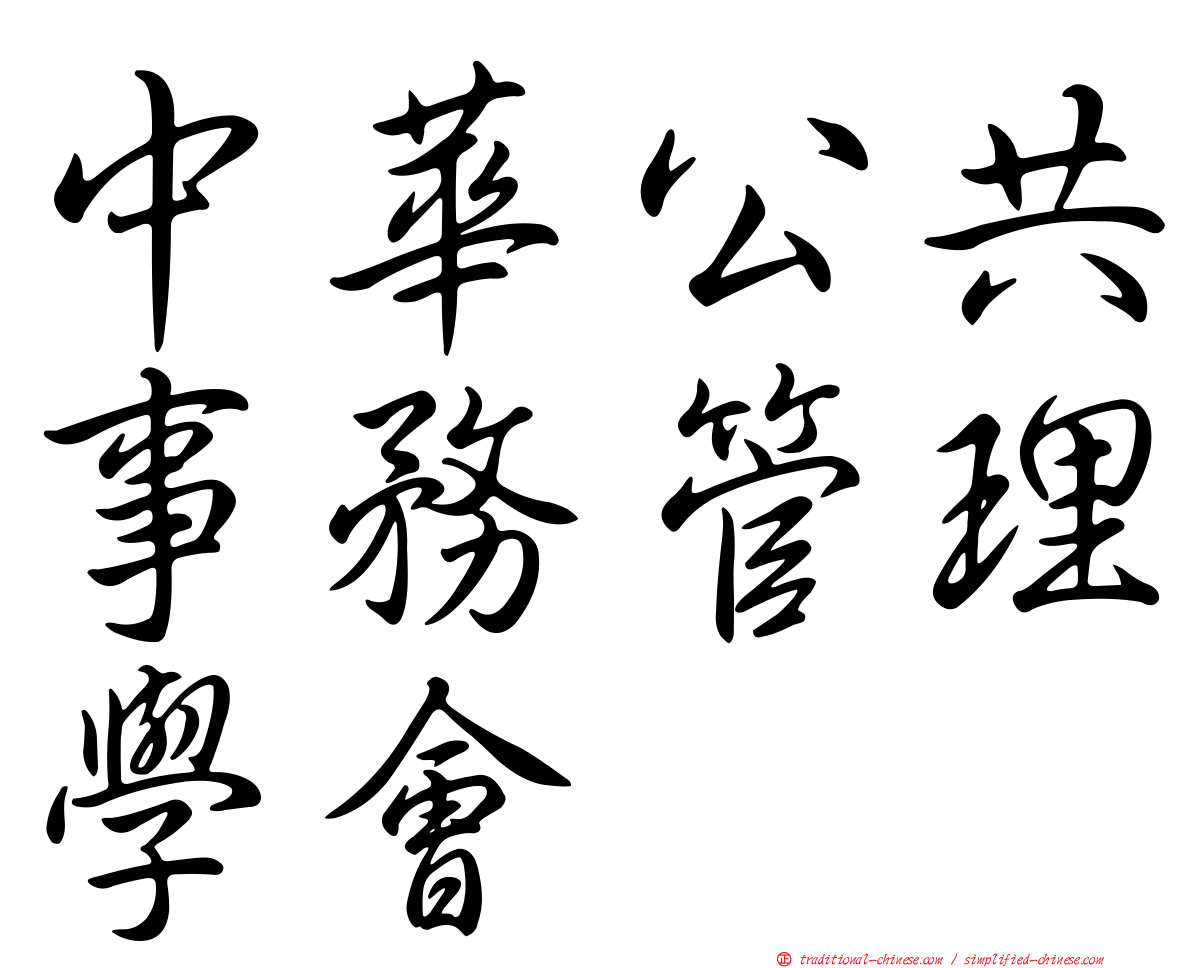 中華公共
事務管理
學會
正 traditional-chinese.com / simplified-chinese.com